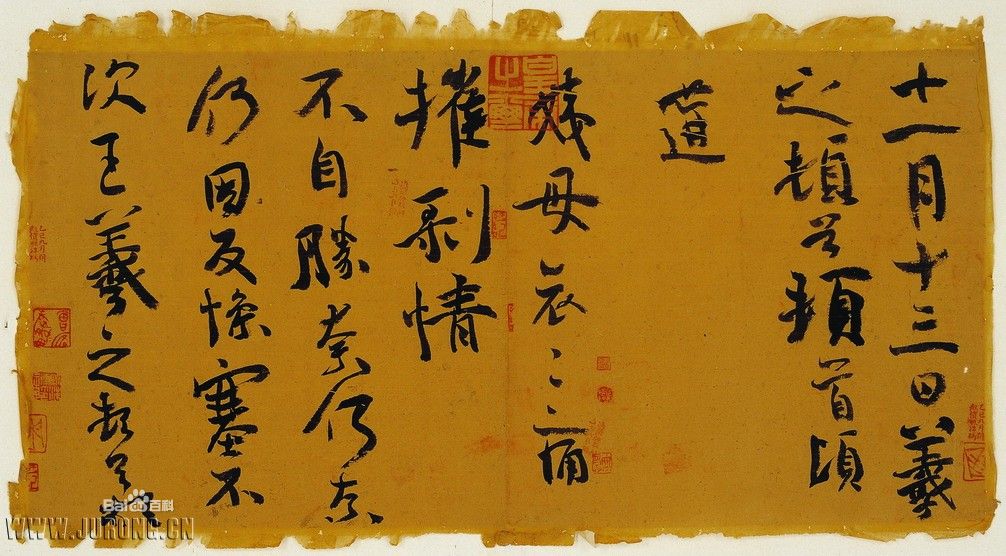 十一月十三日羲
之頓首頓首頃
遘
姨母哀〻痛
摧剥情
不自勝奈何奈
何因反慘塞不
次王羲之頓首
Bai百科
WWW.JURONG.CN